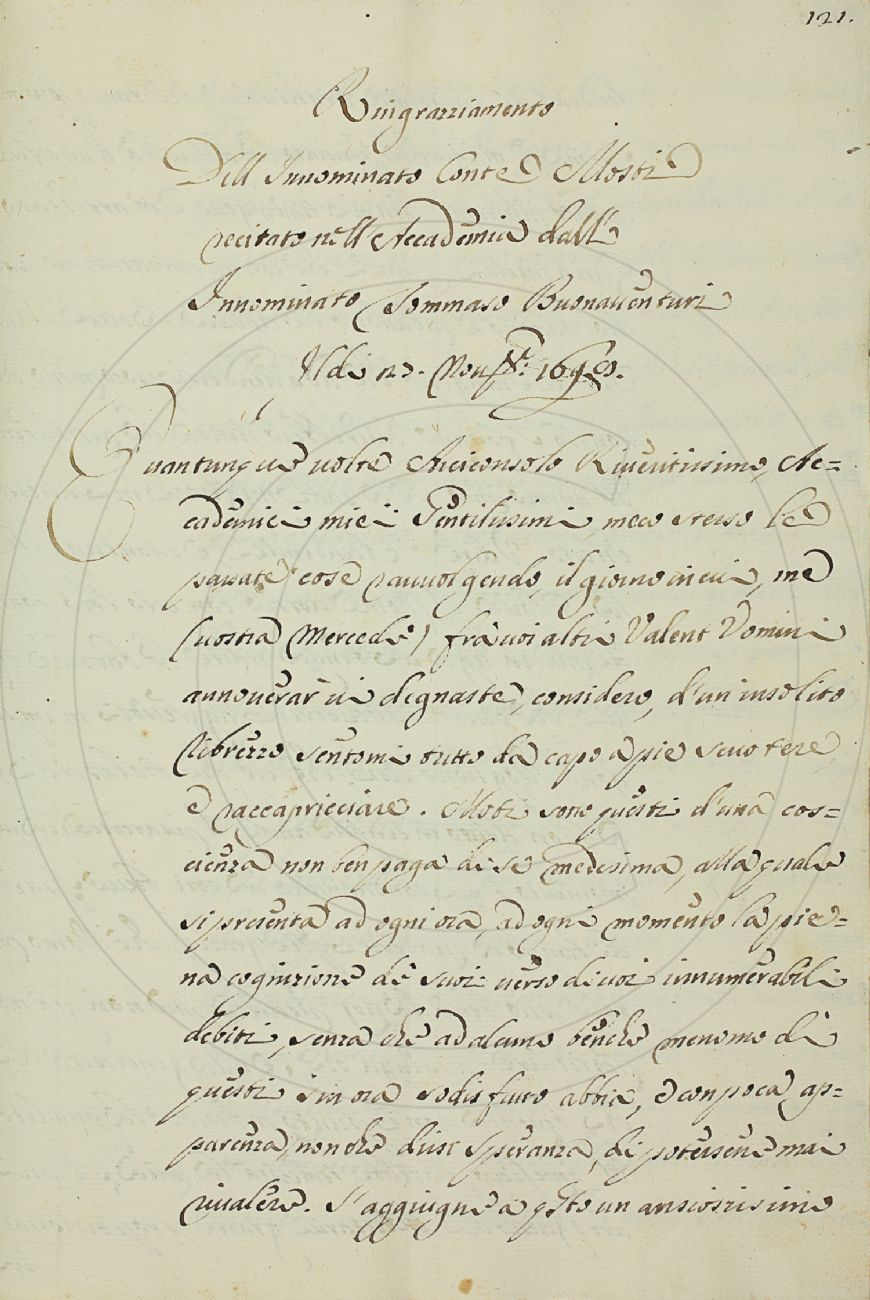 121.
Ringrazziamento
Dell Innominato Conte Mosti
recitato nell'Accademia dall'
Innominato Tommaso Buonaventuri
Il di 27.
Quantunque volte Arciconsolo Riveritissimo, Ac=
cademici miei Gentilissimi, meco stesso le
passate cose ravvolgendo, il giorno in cui, me
(vostra Mercede) frà voi altri Valent Vomini
annoverar vi degnaste, considero, d'un insolito
ribrezzo sentomi tutto da capo à pie scuotere,
e raccapricciare. Moti sono questi d'una cos=
cienza non ben paga di se medesima, alla quale
si presenta ad ogni ora, ad ogni momento la pie=
na cognizione dè suoi verso di voi innumerabili
debiti, senza che ad alcuno benche menomo di
questi sin ora sodisfatto abbia, e con poca ap=
parenza, non che dissi speranza, di potersene mai
rivalere. S'aggiugne a qsto un ansiosissimo